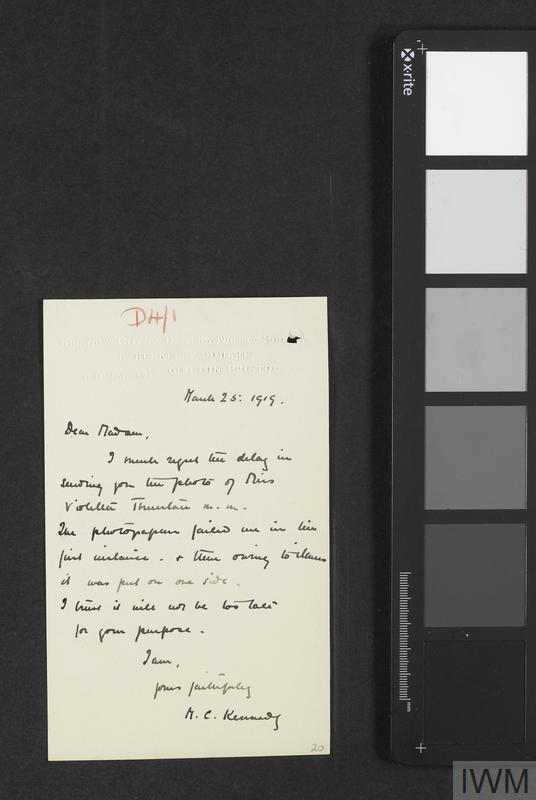 D4/1
CLIFTON, BRISTOL.
March 25. 1919.
Dear Madam,
I much regret the delay in
sending you the photo of Miss
Violetta Thurstan M.M.
The photographer failed me in the
first instance. & then owing to illness
it was put on one side.
I trust it will not be too late
for your purpose.
I am,
yours faithfully
M. C. Kennedy
20
x·rite
mm
IWM